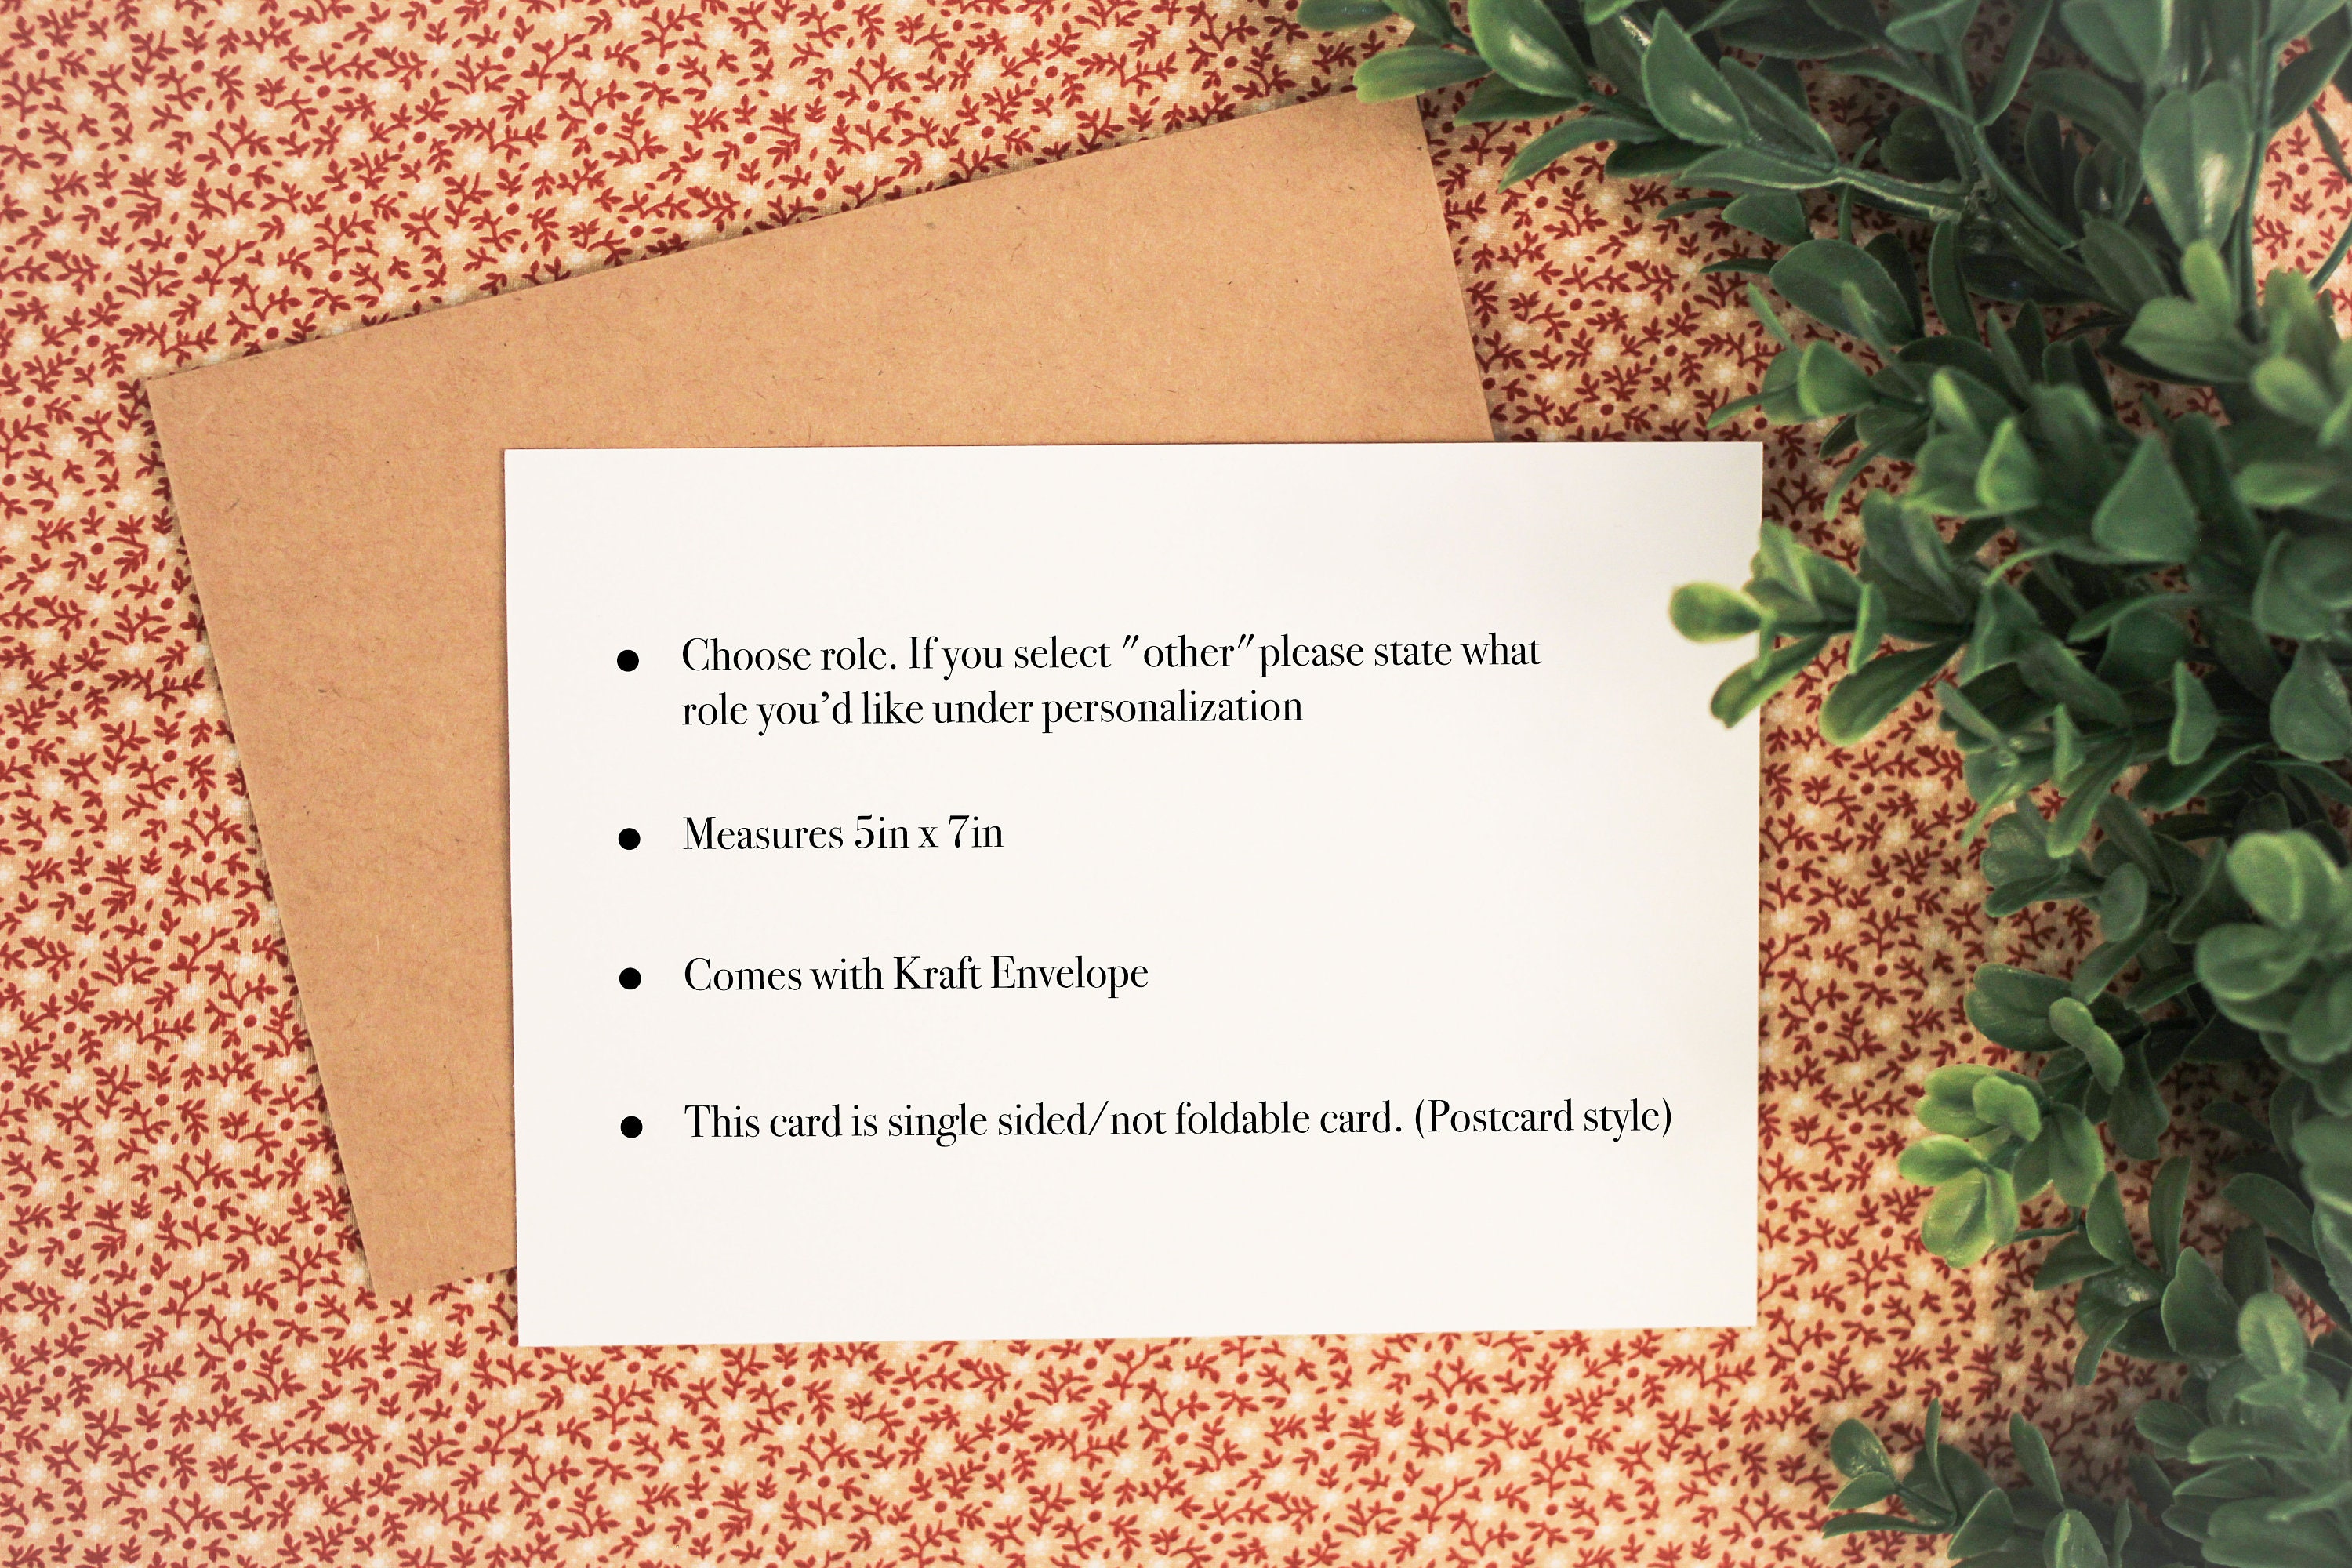 • Choose role. If you select "other" please state what
role you'd like under personalization
• Measures 5in x 7in
• Comes with Kraft Envelope
• This card is single sided/not foldable card. (Postcard style)